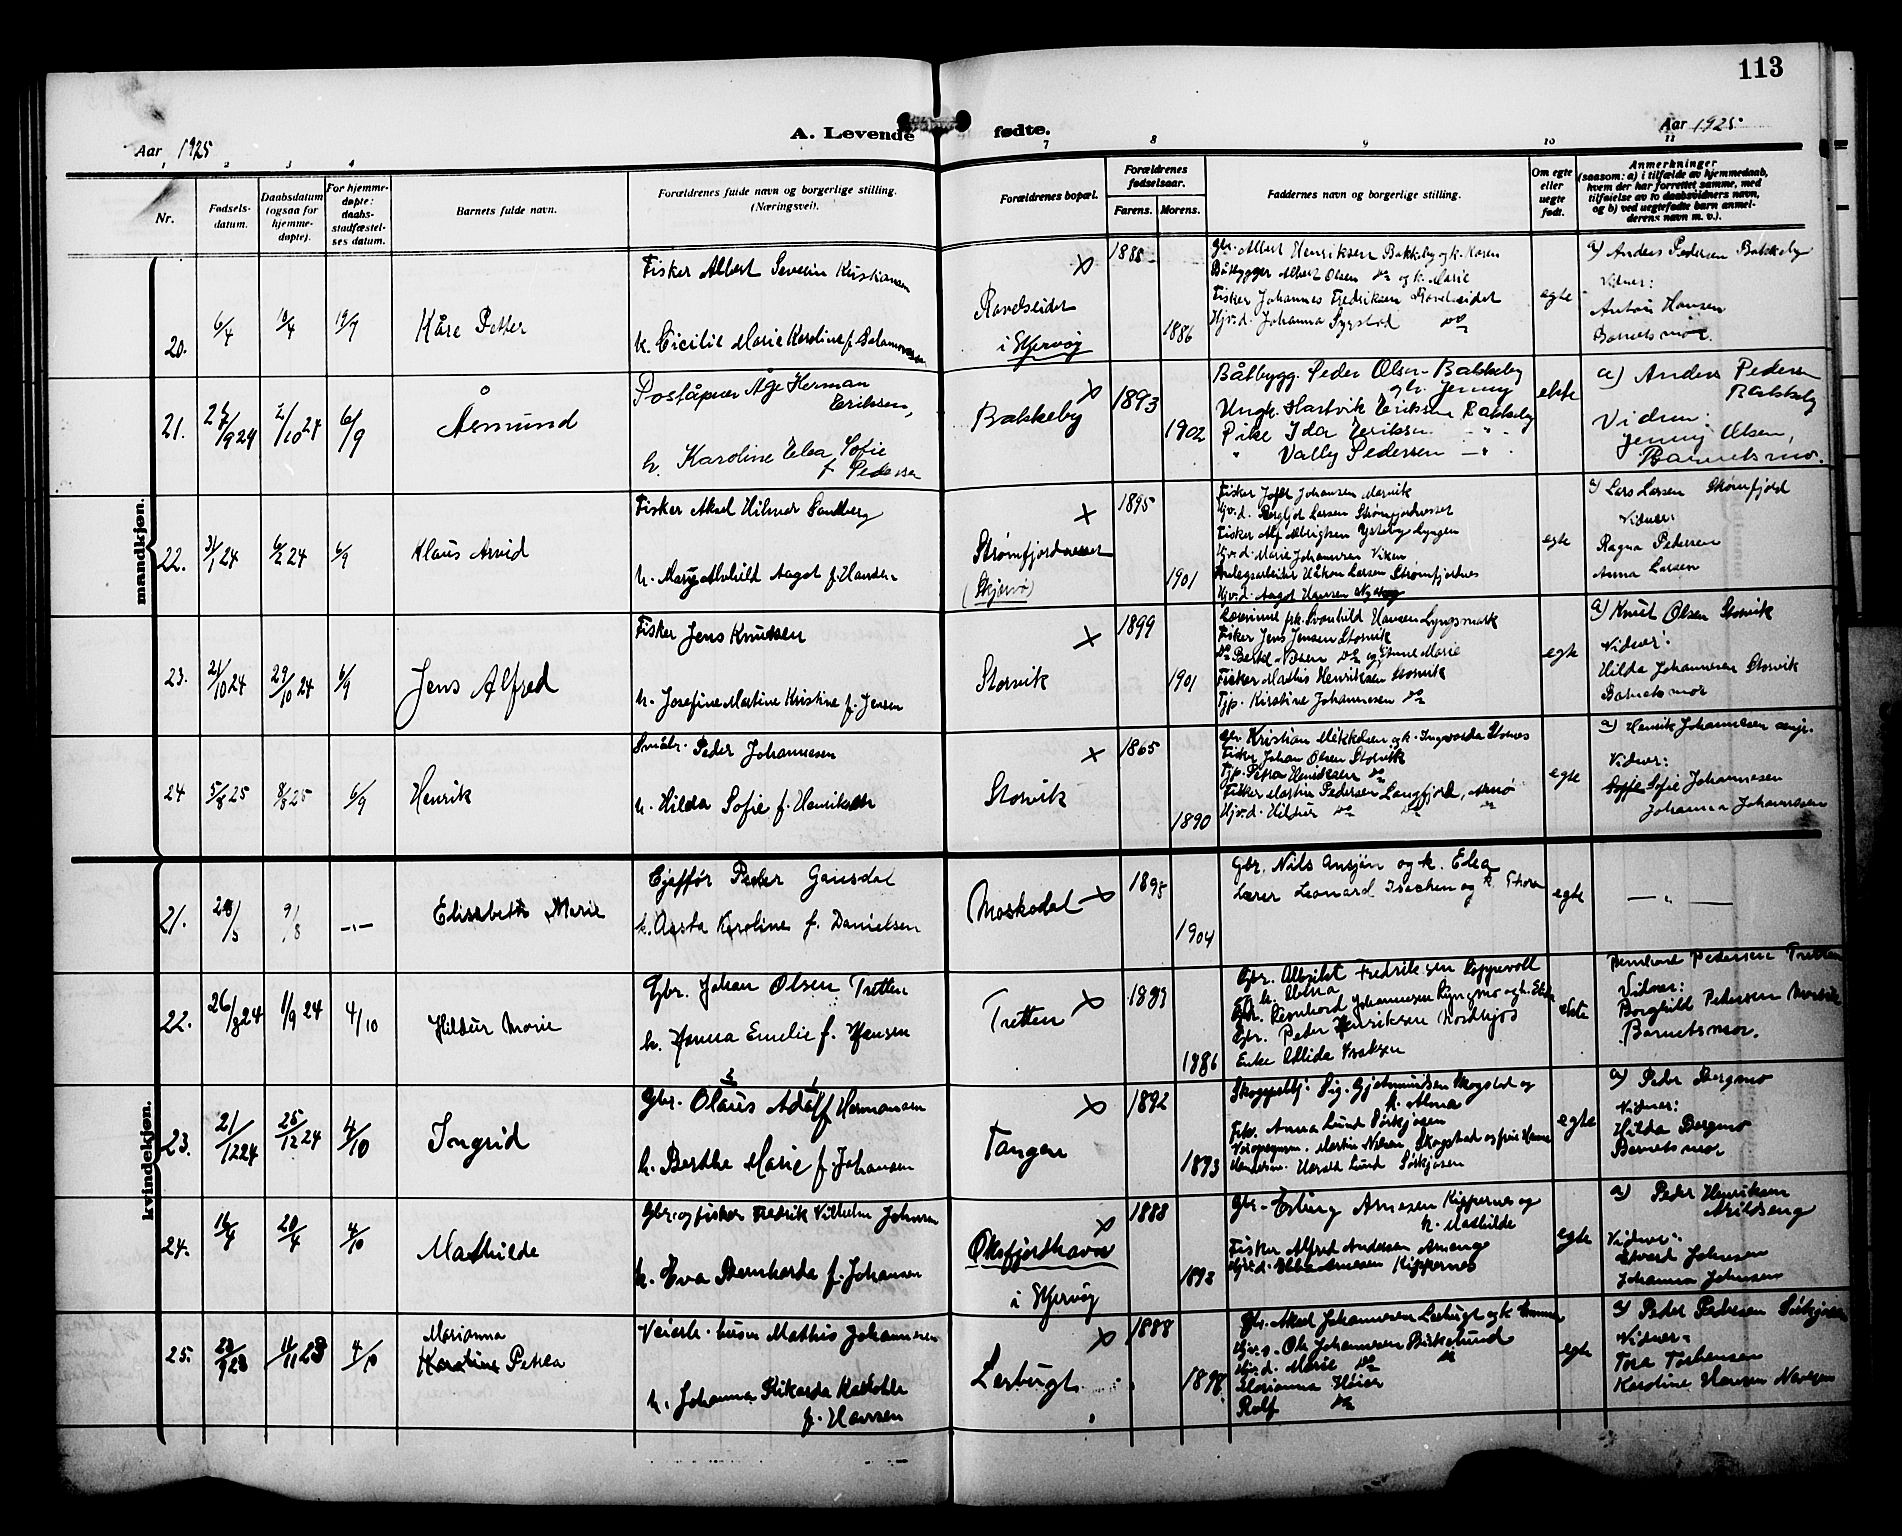 113
A. Levende fødte.
Aar 1925
Aar 1925
1 2 3 4 7 8 9 10 11
Nr.
Fødsels-
datum.
Daabsdatum
(ogsaa for
hjemme-
døpte).
For hjemme-
døpte:
daabs-
stadfæstel-
ses datum.
Barnets fulde navn.
Forældrenes fulde navn og borgerlige stilling.
(Næringsvei).
Forældrenes bopæl.
Forældrenes
fødselsaar.
Farens. Morens.
Faddernes navn og borgerlige stilling.
Om egte
eller
uegte
født.
Anmerkninger
(saasom: a) i tilfælde av hjemmedaab,
hvem der har forrettet samme, med
tilføielse av to daabsvidners navn,
og b) ved uegtefødte barn anmel-
derens navn m. v.).
mandkjøn.
20.
6/4
19/7
Kåre Petter
Fisker Albert Severin Kristiansen
h. Cicilie Marie Karoline f. Salamonsen
Ravelseidet
i Skjervøy
1888
1886
Gbr. Albert Henriksen Bakkeby og k. Maren
Båtbygger Albert Olsen do og k. Marie
Fisker Johannes Fredriksen Ravelseidet
Hjv.d. Johanna Sygstad do
egte
a) Anders Pedersen Bakkeby
Vidner:
Anton Hansen
Barnets mor.
21.
2/10 24
6/9
Åsmund
Poståpner Åge Herman
Eriksen,
h. Karoline Elea Sofie
f. Pedersen
Bakkeby
1893
1902
Båtbygg. Peder Olsen Bakkeby
og h. Jenny
Ungk. Hartvik Eriksen Bakkeby
Pike Ida Eriksen
" Vally Pedersen
ekte
a) Anders Pedersen
Bakkeby
Vidner:
Jenny Olsen,
Barnets mor.
22.
31/1 24
6/2 24
6/9
Klaus Arvid
Fisker Aksel Hilmar Sandberg
h. Mary Alvhild Aagot f. Hansen
Strømfjordneset
(Skjervø)
1895
1901
Fisker Johansen Marvik
Hjv.d. Bergljot Larsen Strømfjordneset
Fisker Alf Albrigtsen Ysteby Lyngen
Hjv.d. Marie Johannesen Viken
Anlegsarbeider Håkon Larsen Strømfjordnes
Hjv.d. Aagot Hansen
egte
a) Lars Larsen Strømfjord
Vidner:
Ragna Pedersen
Anna Larsen
23.
21/10 24
29/10 24
6/9
Jens Alfred
Fisker Jens Knutsen
h. Josefine Martine Kristine f. Jensen
Storvik
1899
1901
Lærerinne frk. Svanhild Hansen Lyngsmark
Fisker Jens Jensen Storvik
do Bertel Olsen do og Anne Marie
Fisker Mathis Henriksen Storvik
Tjp. Kirstine Johannesen do
egte
a) Knut Olsen Storvik
Vidner:
Hilda Johannesen Storvik
Barnets mor
24
5/8 25
8/8 25
6/9
Henrik
Småbr. Peder Johannesen
h. Hilda Sofie f. Henriksen
Storvik
1865
1890
Gbr. Kristian Mikkelsen og k. Ingvarda Stornes
Fisker Johan Olsen Storvik
Tjp. Petra Henriksen do
Fisker Martin Pedersen Langfjord, Arnø
Hjv.d. Hildur do do
egte
a) Henrik Johannesen
Vidner:
Sofie Johannesen
Johanna Johannesen
kvindekjøn.
21.
9/8
Elisabeth Marie
Peder Gausdal
h. Aasta Karoline f. Danielsen
Moskodal
1895
1904
Gbr. Nils Ansjøn og k. Elea
Lærer Leonard Isachsen og k. Thora
egte
22.
26/8 24
1/9 24
4/10
Hildur Marie
Gbr. Johan Olsen Tretten
h. Hanna Emelie f. Hansen
Tretten
1899
1886
Gbr. Albrikt Fredriksen
og k. Alma
Gbr. Bernhard Johannesen
Gbr. Peder Henriksen Nordkjos
Enke Alida Isaksen
ekte
Bernhard Pedersen Tretten
Vidner:
Borghild Pedersen
Barnets mor.
23.
21/12 24
25/12 24
4/10
Ingrid
Gbr. Olaus Adolf Hermansen
h. Berthe Marie f. Johansen
Tangen
1892
1893
Sig. Gjetmundsen Skogstad og
k. Alma
Frk. Anna Lund Sørkjosen
Martin Nilsen Skogstad og frue Hanna
Harald Lund Sørkjosen
egte
a) Peder Bergmo
Vidner:
Hilda Bergmo
Barnets mor
24.
16/4
20/4
4/10
Mathilde
Gbr. og fisker Fredrik Vilhelm Johnsen
h. Eva Bernharda f. Johansen
Oksfjordhavn
i Skjervøy
1888
1893
Gbr. Esberg Arnesen Kippernes og
k. Mathilde
Fisker Alfred Andersen
Hjv.d. Ebba Arnesen Kippernes
egte
a) Peder Henriksen
Vidner:
Edvard Johnsen
Johanna Johnsen
25.
4/10
Marianna
Karoline Petrea
Mathis Johannesen
h. Johanna Rikarda
f. Hansen
Lerbugt
1888
1898
Gbr. Aksel Johannesen Lerbugt og k. Emma
Ole Johannesen Birkelund
Hjv.d. Marie do do
Marianna Høier
Rolf do
egte
a) Peder Pedersen Sørkjosen
Vidner:
Tora Torbensen
Karoline Hansen